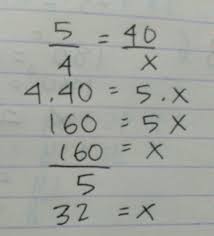 5/4 = 40/x
4.40 = 5.x
160 = 5x
160/5 = x
32 = x